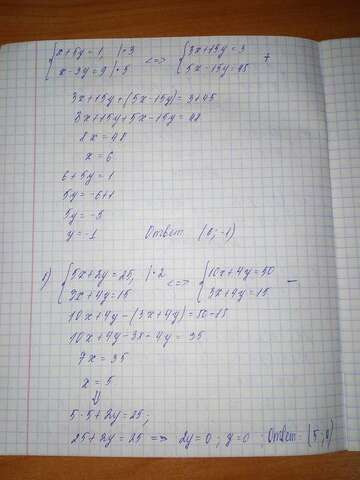 {x+5y=1, |·3 <=> {3x+15y=3 +
{x-3y=9 |·5 {5x-15y=45
3x+15y+(5x-15y)=3+45
3x+15y+5x-15y=48
8x=48
x=6
6+5y=1
5y=-6+1
5y=-5
y=-1 Ответ (6;-1)
{5x+2y=25, |·2 <=> {10x+4y=50 -
{3x+4y=15 {3x+4y=15
10x+4y-(3x+4y)=50-15
10x+4y-3x-4y=35
7x=35
x=5
⇓
5·5+2y=25;
25+2y=25 => 2y=0; y=0 Ответ: (5;0)